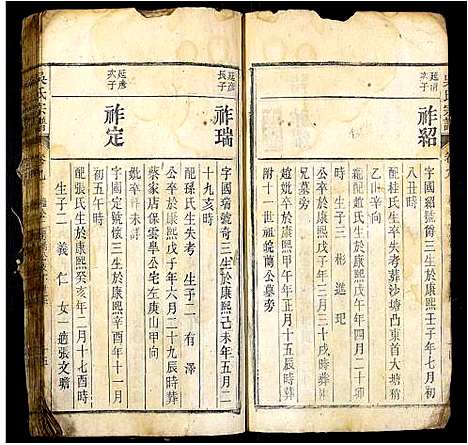 祚紹
字國紹號爵三生於康熙壬子年七月初
八丑時
配桂氏生卒失考葬沙塘凸東首大塘稍
乙山辛向
繼配趙氏生於康熙戊午年四月二十
時 生子三 彬 進 玘
公卒於康熙戊子年三月二十戌時葬
兄墓旁
趙妣卒於康熙甲午年正月十五辰時葬
附十一世祖皖蘭公墓旁
延彥
長子
祚瑞
字國瑞號奇三生於康熙己未年五月二
十九亥時
配孫氏生失考 生子二 有 澤
公卒於康熙戊子年六月二十九辰時葬
蔡家店保雲學公宅左庚山甲向
妣卒葬未詳
延彥
次子
祚定
字國定號懷三生於康熙辛酉年十一月
初五午時
配張氏生於康熙癸亥年二月十七酉時
生子二 義 仁 女一適張文瞻
吳氏宗譜
卷九